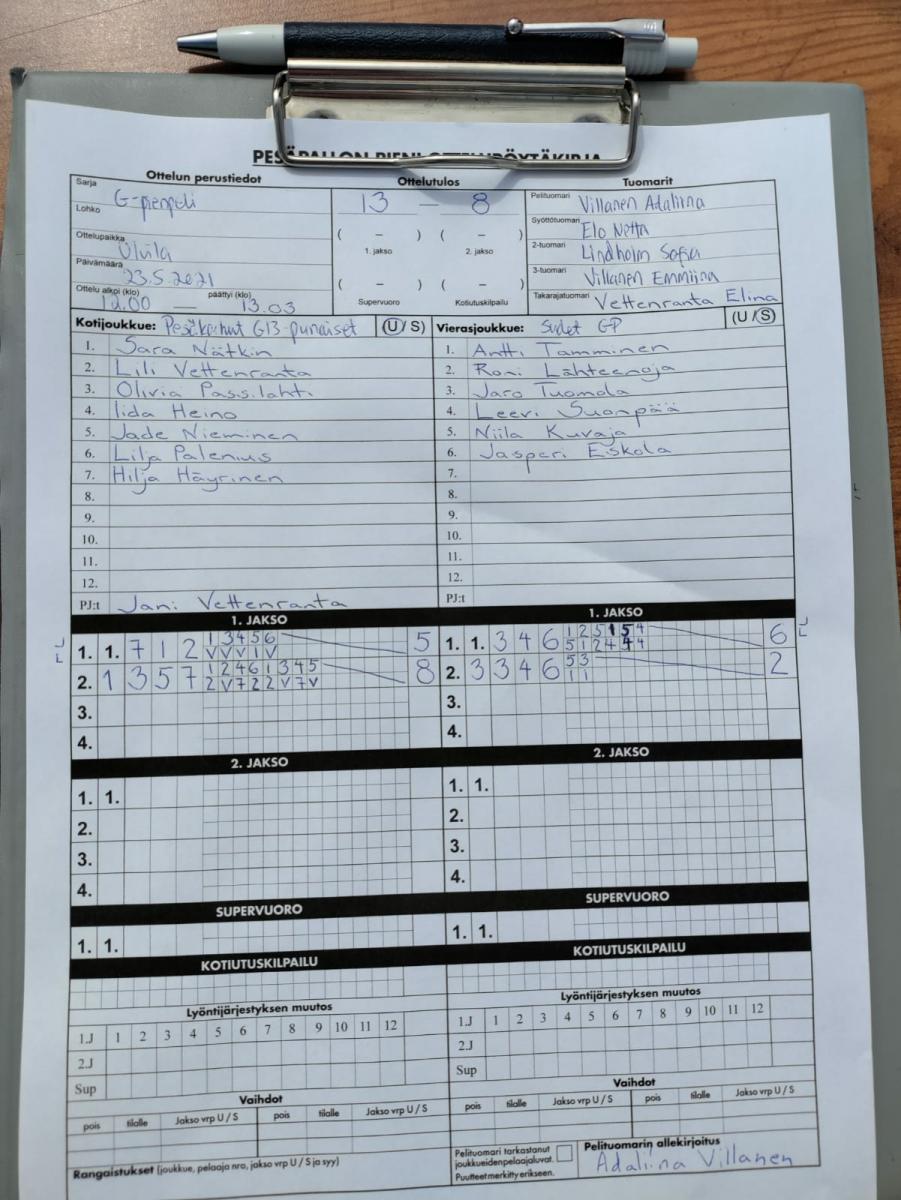 PESÄPALLON PIENI OTTELUPÖYTÄKIRJA
Ottelun perustiedot
Ottelutulos
Tuomarit
Sarja G-pienpeli
Lohko
Ottelupaikka Ulvila
Päivämäärä 23.5.2021
Ottelu alkoi (klo) 12.00 päättyi (klo) 13.03
13 – 8
( – ) ( – )
1. jakso 2. jakso
( – ) ( – )
Supervuoro Kotiutuskilpailu
Pelituomari Villanen Adaliina
Syöttötuomari Elo Netta
2-tuomari Lindholm Sofia
3-tuomari Villanen Emmiina
Takarajatuomari Vettenranta Elina
Kotijoukkue: Pesäkarhut G13-punaiset (U/S)
1. Sara Nätkin
2. Lili Vettenranta
3. Olivia Passilahti
4. Iida Heino
5. Jade Nieminen
6. Lilja Palenius
7. Hilja Häyrinen
8.
9.
10.
11.
12.
PJ:t Jani Vettenranta
Vierasjoukkue: Sudet GP (U/S)
1. Antti Tamminen
2. Roni Lähteenoja
3. Jaro Tuomola
4. Leevi Suonpää
5. Niila Kuvaja
6. Jasperi Eskola
7.
8.
9.
10.
11.
12.
PJ:t
1. JAKSO
1. 1. 7 1 2 1 3 4 5 6 5
V V V 1 V
2. 1 3 5 7 1 2 4 6 1 3 4 5 8
2 V 7 2 2 V 7 V
3.
4.
1. JAKSO
1. 1. 3 4 6 1 2 5 1 5 4 6
5 1 2 4 4
2. 3 3 4 6 5 3 2
1 1
3.
4.
2. JAKSO
1. 1.
2.
3.
4.
2. JAKSO
1. 1.
2.
3.
4.
SUPERVUORO
1. 1.
SUPERVUORO
1. 1.
KOTIUTUSKILPAILU
KOTIUTUSKILPAILU
Lyöntijärjestyksen muutos
1.J 1 2 3 4 5 6 7 8 9 10 11 12
2.J
Sup
Lyöntijärjestyksen muutos
1.J 1 2 3 4 5 6 7 8 9 10 11 12
2.J
Sup
Vaihdot
pois tilalle Jakso vrp U / S pois tilalle Jakso vrp U / S
Vaihdot
pois tilalle Jakso vrp U / S pois tilalle Jakso vrp U / S
Rangaistukset (joukkue, pelaaja nro, jakso vrp U / S ja syy)
Pelituomari tarkastanut
joukkueidenpelaajaluvat.
Puutteet merkitty erikseen.
Pelituomarin allekirjoitus
Adaliina Villanen